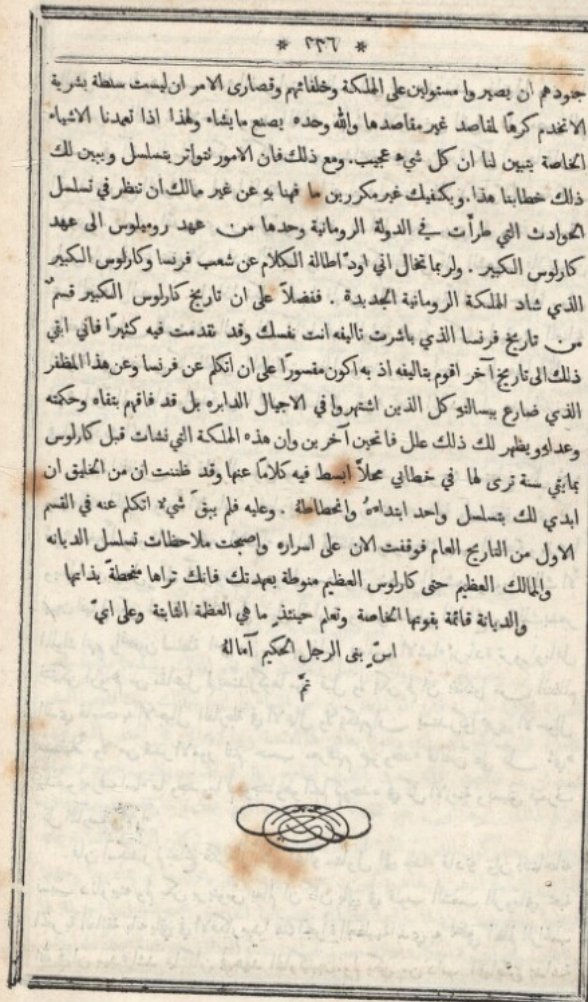 * ٦٢٦ *
جدودهم ان يصيروا مستولين على المملكة وخلفائهم وقصارى الامر ان ليست سلطة بشرية
الا تخدم كرهًا لمقاصد غير مقاصدها والله وحده يصنع ما يشاء ولهذا اذا تعمدنا الاشياء
الخاصة يتبين لنا ان كل شيء عجيب. ومع ذلك فان الامور تتواتر بتسلسل ويبين لك
ذلك خطابنا هذا. ويكفيك غير مكررين ما فهنا به عن غير مالك ان تنظر في تسلسل
الحوادث التي طرأت في الدولة الرومانية وحدها من عهد روميلوس الى عهد
كارلوس الكبير . ولربما تخال اني اودّ اطالة الكلام عن شعب فرنسا وكارلوس الكبير
الذي شاد المملكة الرومانية الجديدة . ففضلاً على ان تاريخ كارلوس الكبير قسمٌ
من تاريخ فرنسا الذي باشرت تاليفه انت نفسك وقد تقدمت فيه كثيرًا فاني ابقي
ذلك الى تاريخ آخر اقوم بتاليفه اذ به اكون مقسورًا على ان اتكلم عن فرنسا وعن هذا المظفر
الذي ضارع ببسالته كل الذين اشتهروا في الاجيال الدابره بل قد فاقهم بتقاه وحكمته
وعدله ويظهر لك ذلك علل فاتحين آخرين وان هذه المملكة التي نشات قبل كارلوس
بمايتي سنة ترى لها في خطابي محلاً ابسط فيه كلامًا عنها وقد ظننت ان من الخليق ان
ابدي لك بتسلسل واحد ابتداءهُ وانحطاطهُ . وعليه فلم يبقَ شيء اتكلم عنه في القسم
الاول من التاريخ العام فوقفت الان على اسراره واصبحت ملاحظات تسلسل الديانه
والمالك العظيم حتى كارلوس العظيم منوطة بعهدتك فانك تراها منحطةً بذاتها
والديانة قائمة بقوتها الخاصة وتعلم حينئذٍ ما هي العظمة الثابتة وعلى ايّ
اسٍّ بنى الرجل الحكيم آمالهُ
تمَّ